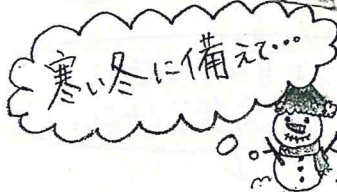 寒い冬に備えて…